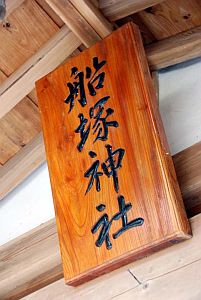 船塚神社